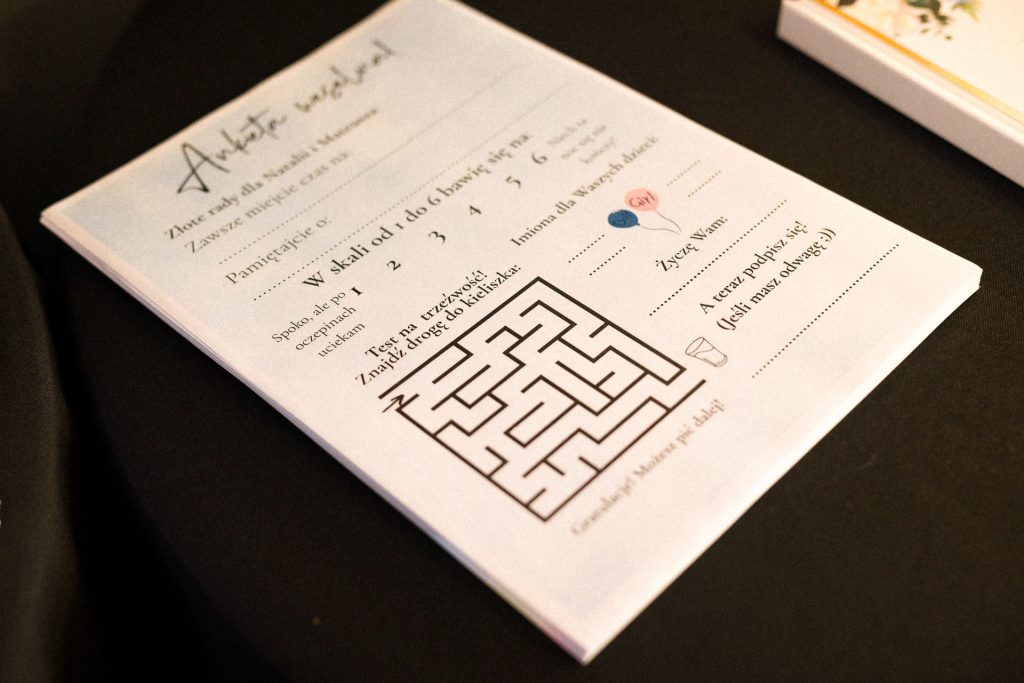 Ankieta weselna!
Złote rady dla Natalii i Mateusza
Zawsze miejcie czas na:
Pamiętajcie o:
W skali od 1 do 6 bawię się na:
Spoko, ale po
oczepinach
uciekam
1 2 3 4 5 6
Niech ta
noc się nie
kończy!
Test na trzeźwość!
Znajdź drogę do kieliszka:
Gratulacje! Możesz pić dalej!
Imiona dla Waszych dzieci:
Girl
Życzę Wam:
A teraz podpisz się!
(Jeśli masz odwagę ;))